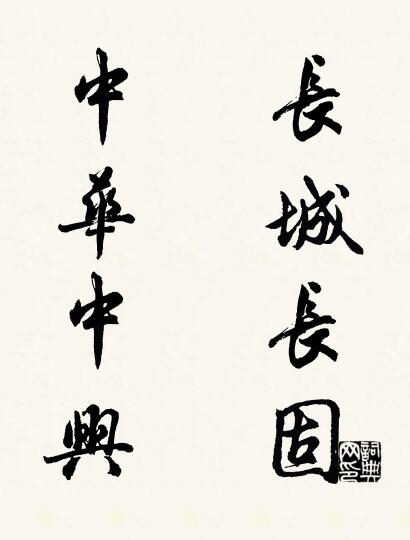 長城長固
中華中興
詞典
网印